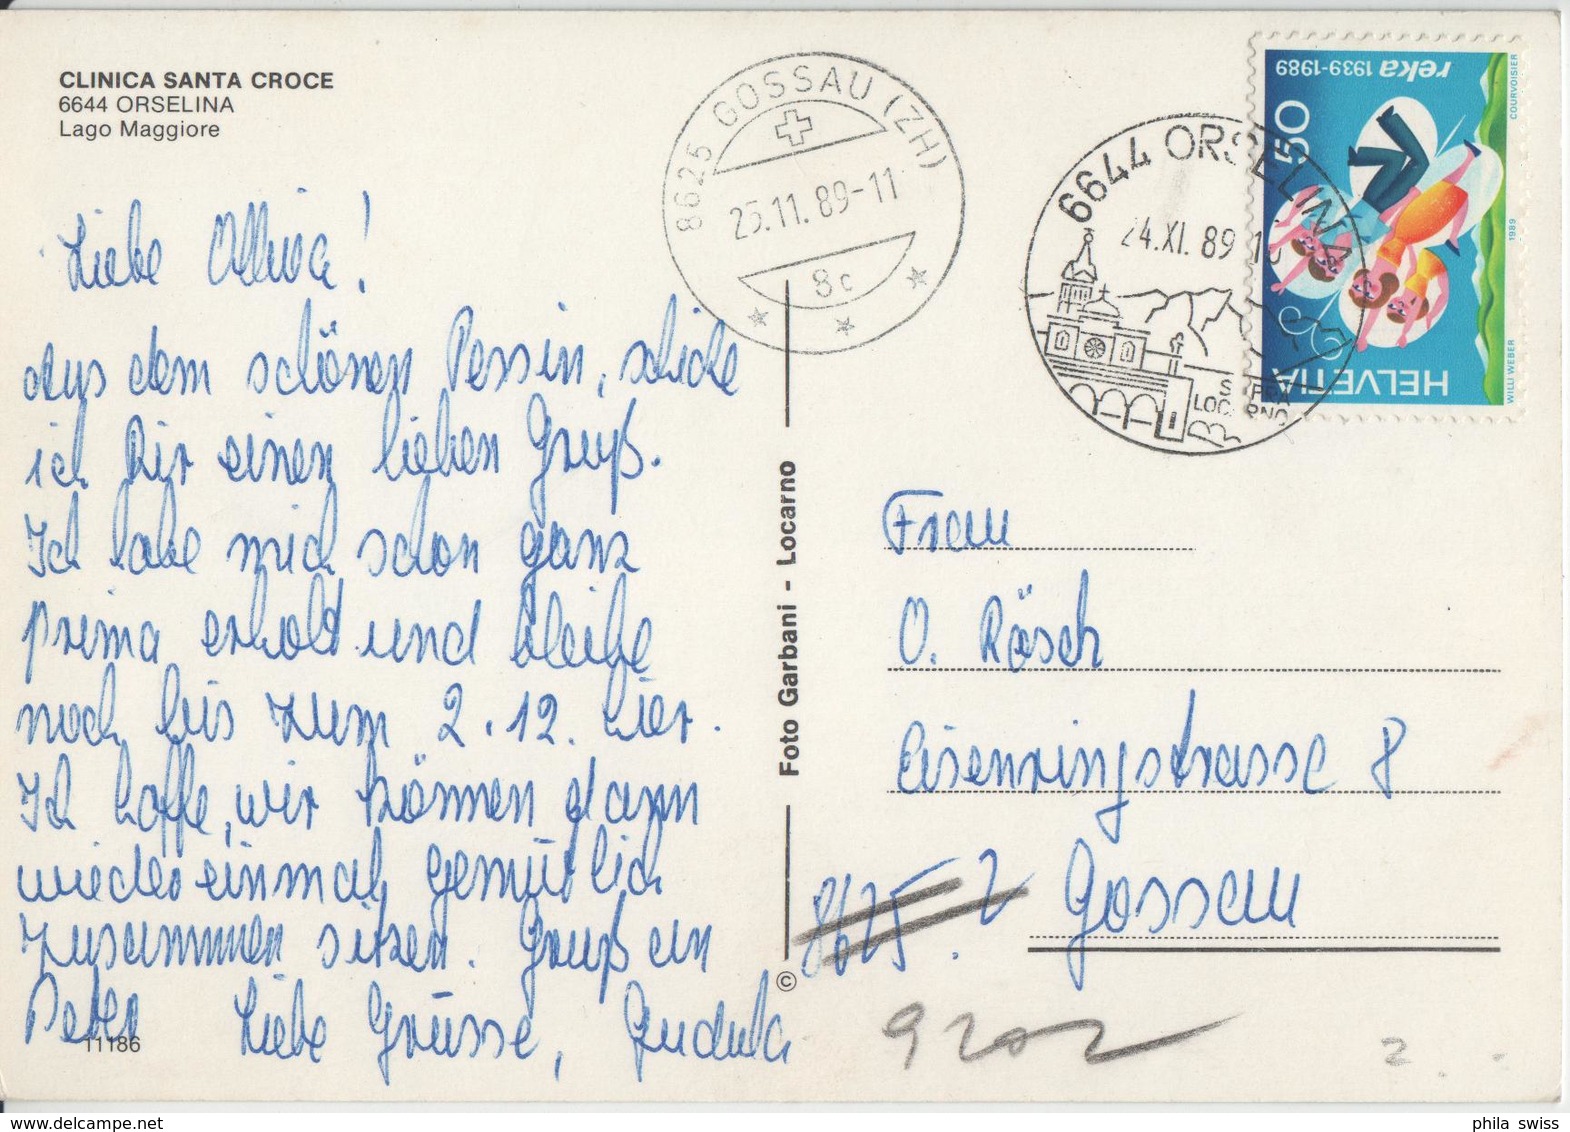 CLINICA SANTA CROCE
6644 ORSELINA
Lago Maggiore
Liebe Olliva!
aus dem schönen Tessin, schicke
ich Dir einen lieben Gruß.
Ich habe mich schon ganz
prima erholt und bleibe
noch bis zum 2.12. hier.
Ich hoffe, wir können dann
wieder einmal gemütlich
zusammen sitzen. Gruß an
Peter Liebe Grüsse, Gudula
11186
Foto Garbani - Locarno
©
8625 GOSSAU (ZH)
25.11.89-11
8c
6644 ORSELINA
24.XI.89
SOPRA
LOCARNO
reka 1939-1989
50
HELVETIA
COURVOISIER
1989
WILLI WEBER
Frau
O. Rösch
Eisenringstrasse 8
8625. 2 Gossau
9202
2
phila swiss